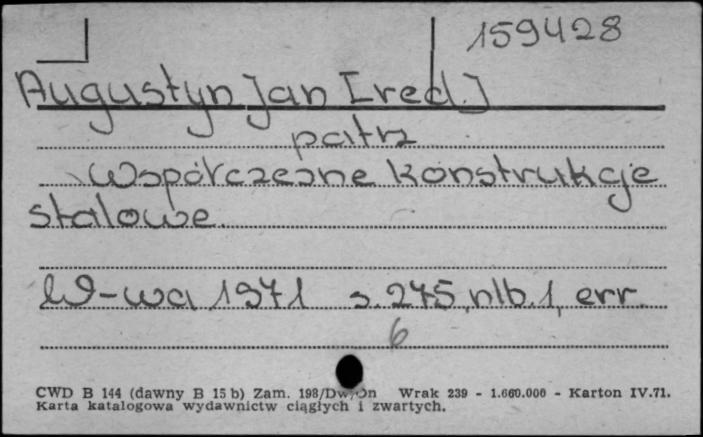 159428
Augustyn Jan [red.]
patrz
Współczesne konstrukcje
stalowe.
W-wa 1971 s. 275, nlb. 1, err.
6
CWD B 144 (dawny B 15 b) Zam. 198/Dw/Dn Wrak 239 - 1.660.000 - Karton IV.71.
Karta katalogowa wydawnictw ciągłych i zwartych.